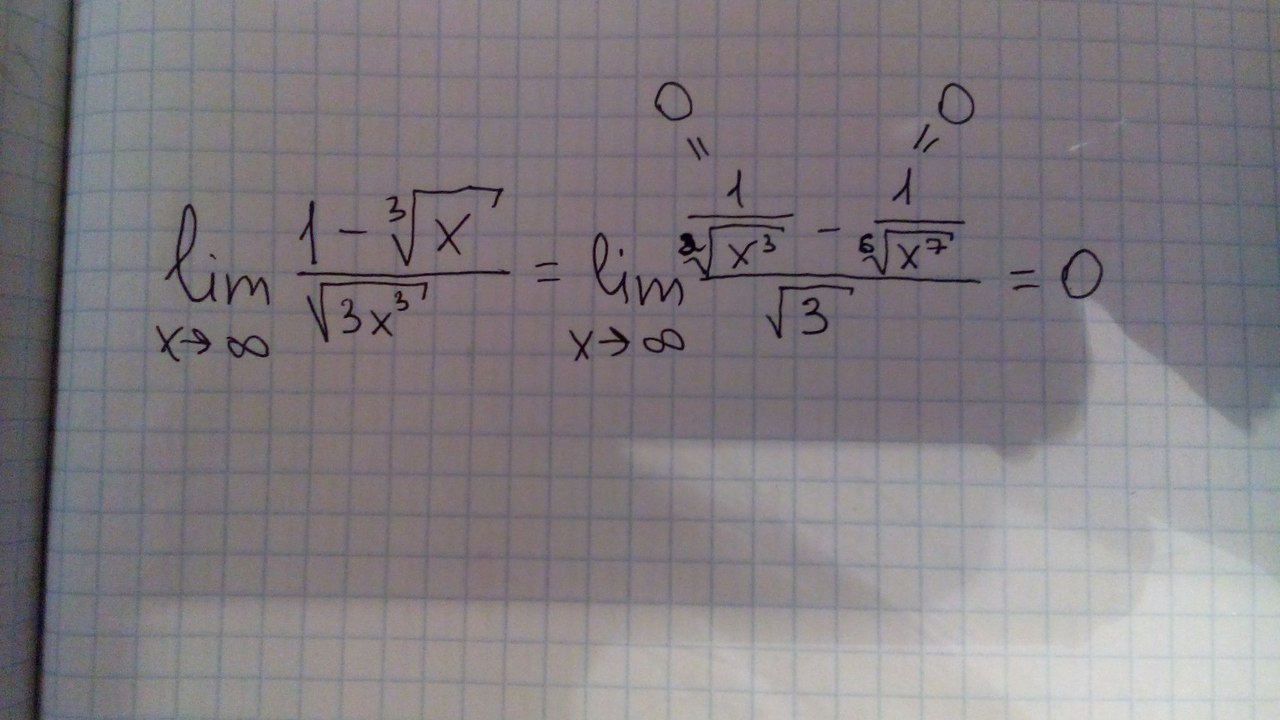 0 0
lim x→∞ (1 − ∛x) / √(3x³) = lim x→∞ (1/²√(x³) − 1/⁶√(x⁷)) / √3 = 0